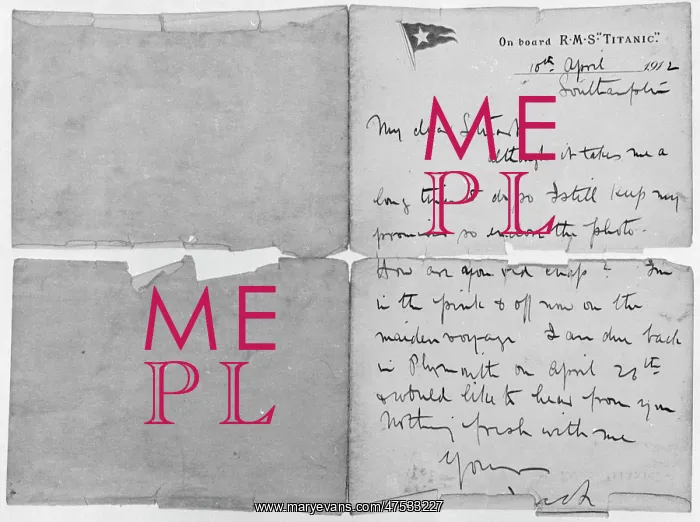 On board R·M·S "TITANIC".
10th April 1912
Southampton
My dear Stuart
although it takes me a
long time to do so I still keep my
promises so enclose the photo.
How are you old chap? I'm
in the pink & off now on the
maiden voyage I am due back
in Plymouth on April 28th
& would like to hear from you
Nothing fresh with me
Yours
Jack
ME
PL
ME
PL
www.maryevans.com/47533227